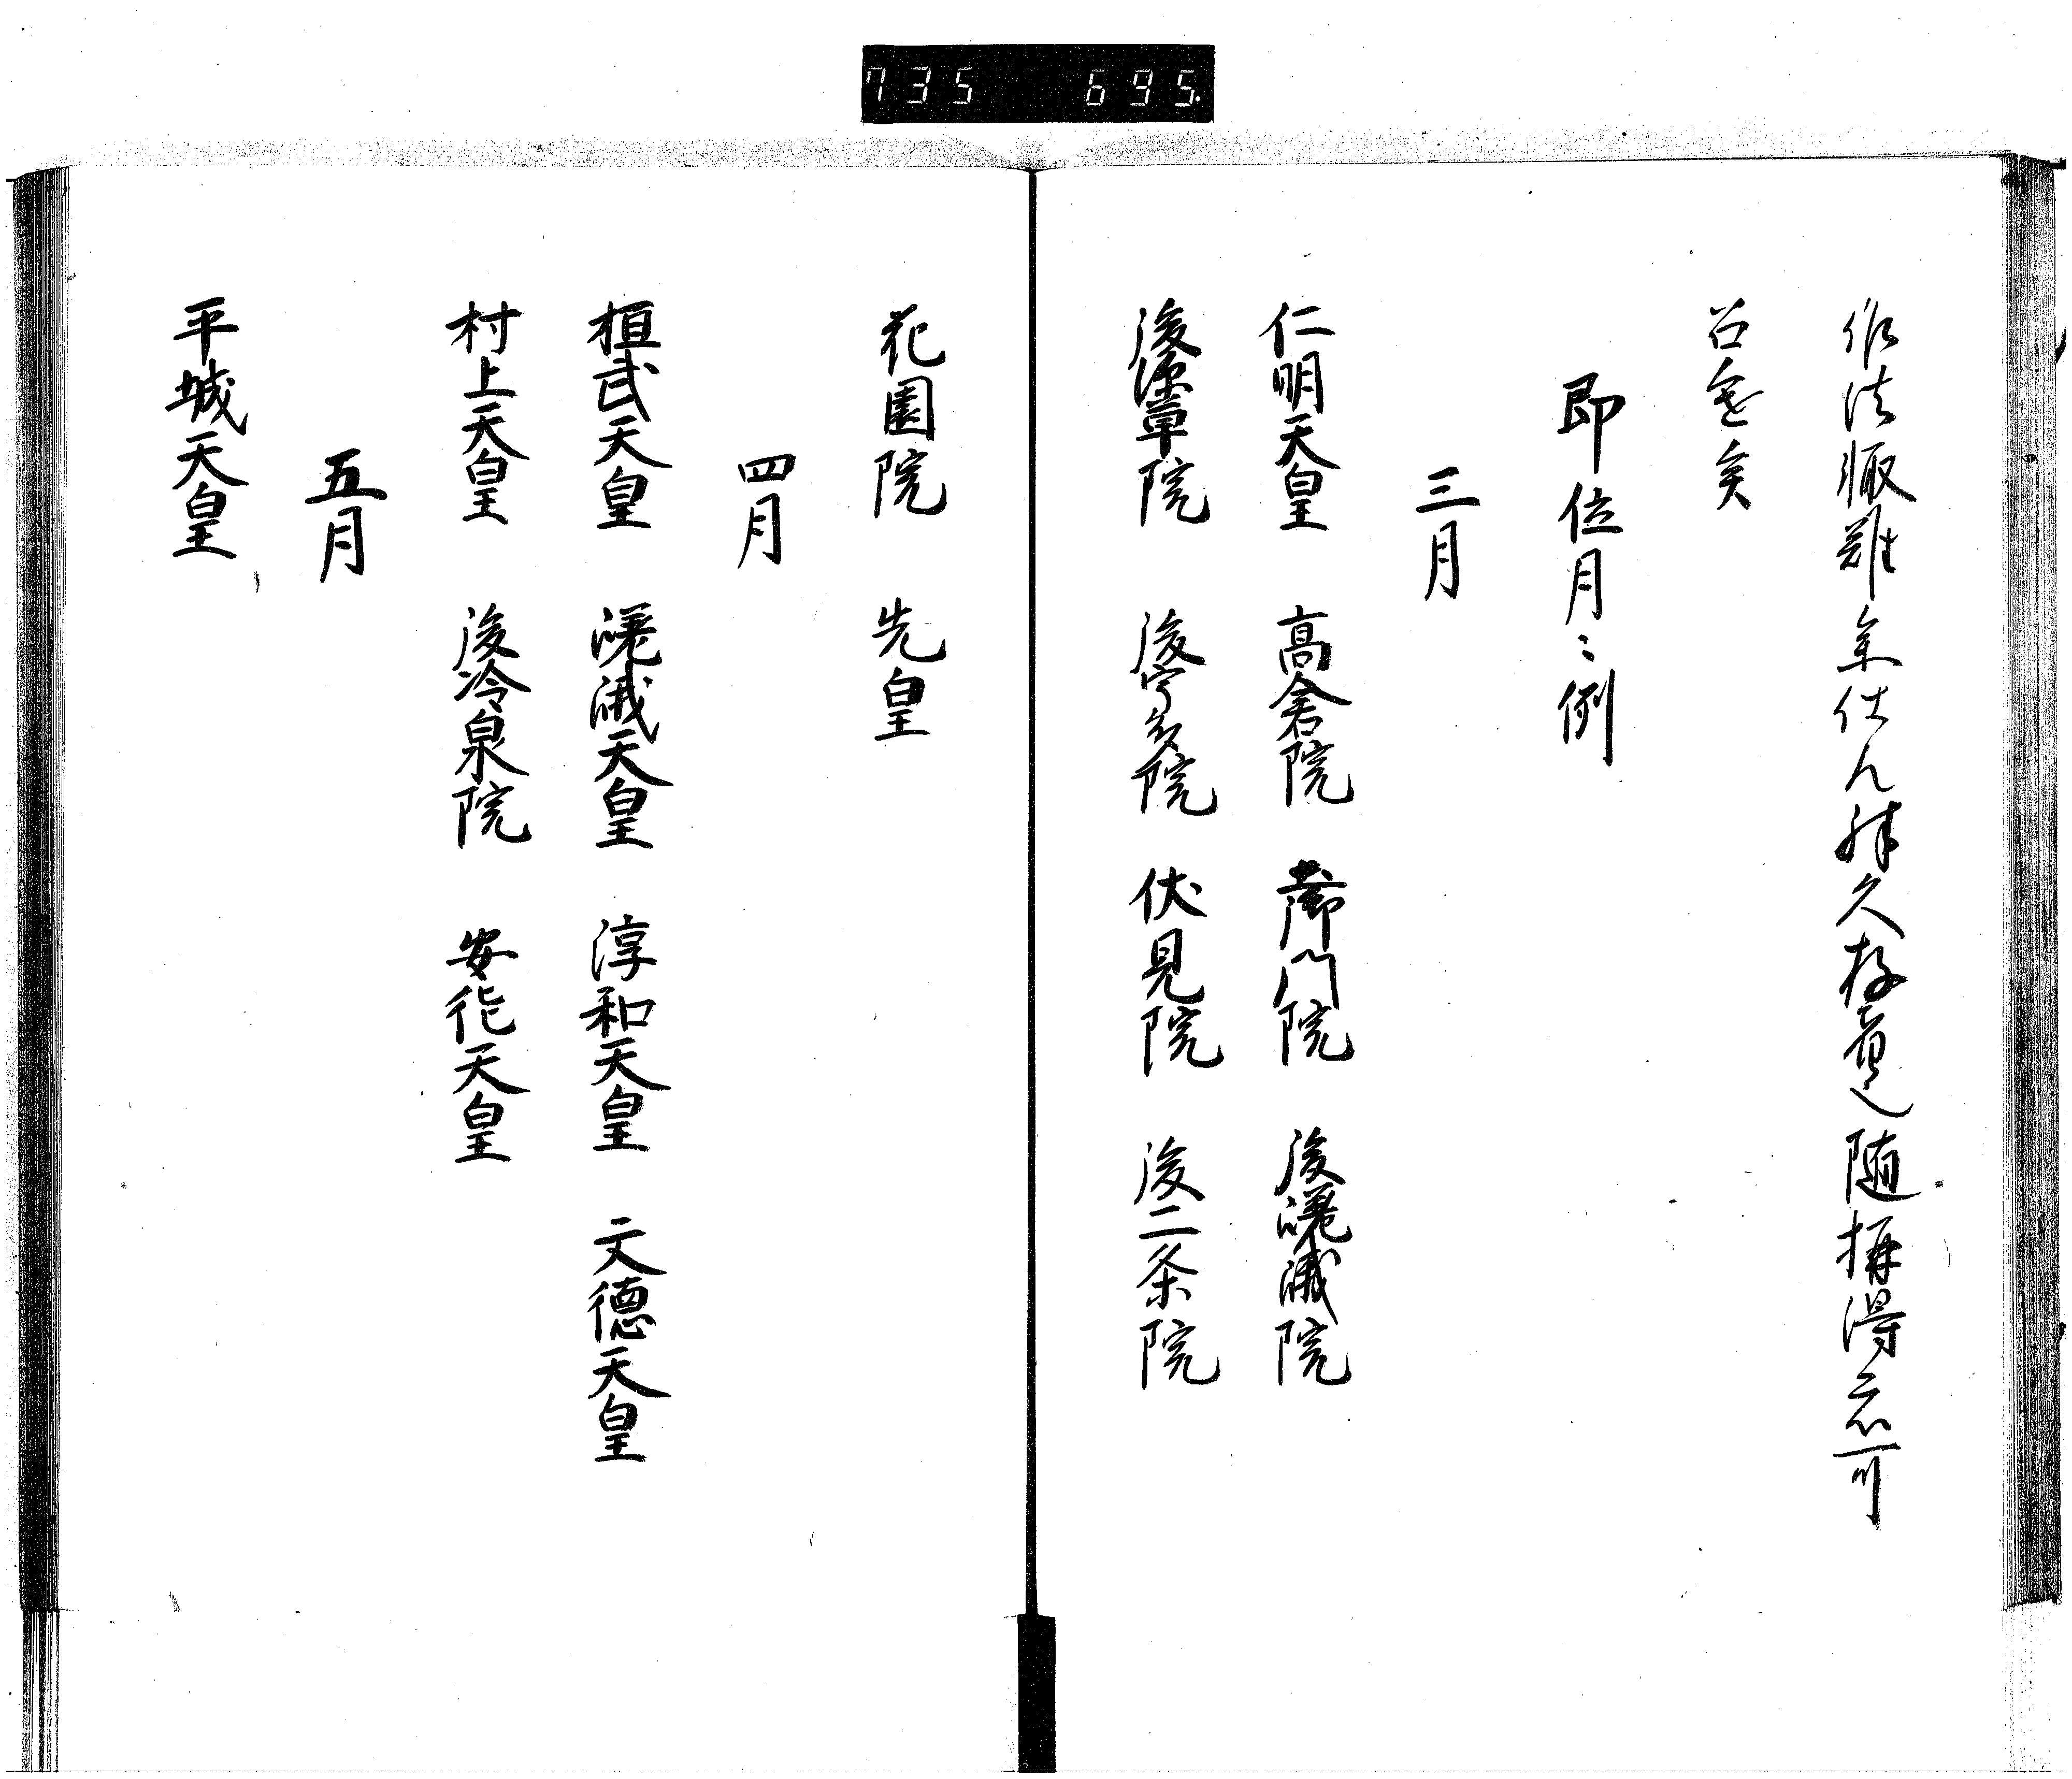 735 695.
作法輙難参仕之由久存覚随構得云可
召進矣
即位月〻例
三月
仁明天皇 高倉院 土御門院 後嵯峨院
後深草院 後宇多院 伏見院 後二条院
花園院 先皇
四月
桓武天皇 嵯峨天皇 淳和天皇 文徳天皇
村上天皇 後冷泉院 安徳天皇
五月
平城天皇